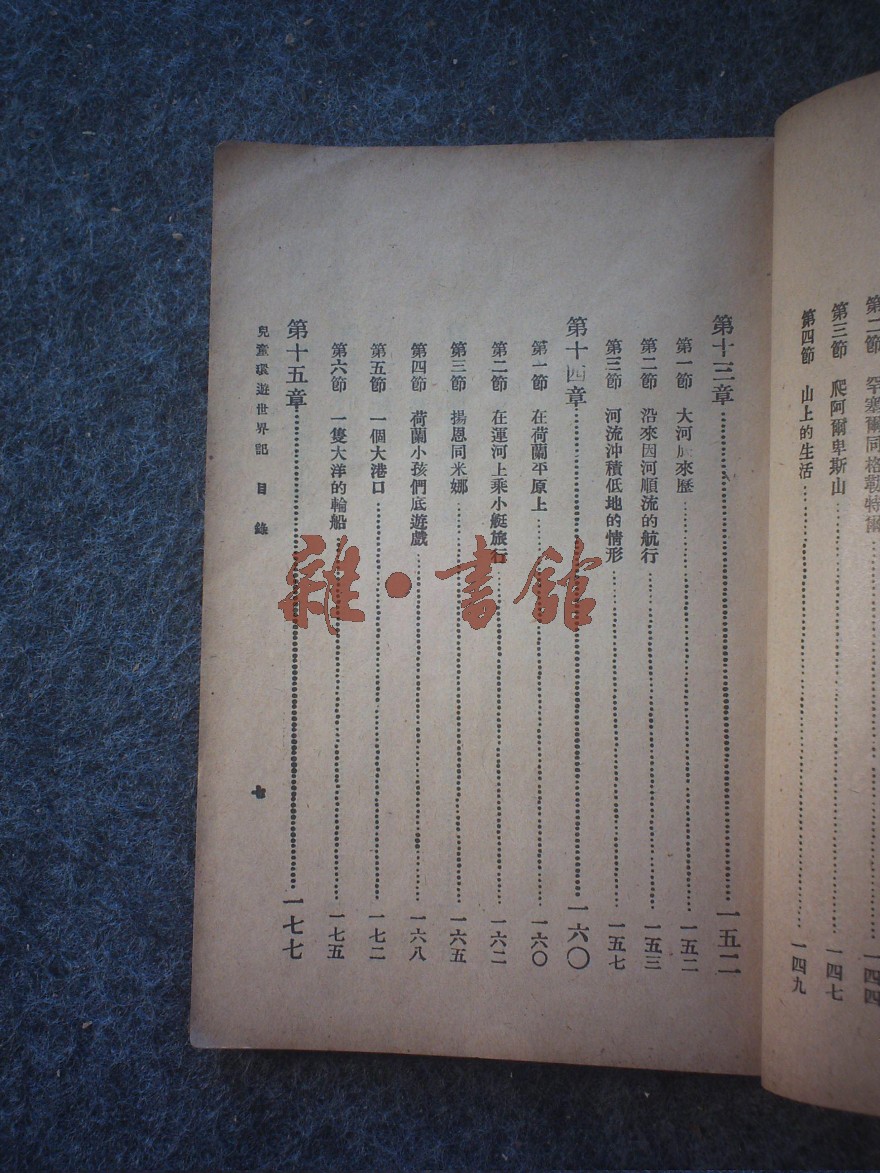 第二節 罕塞爾同格勒特爾 一四四
第三節 爬阿爾卑斯山 一四七
第四節 山上的生活 一四九
第十三章 一五二
第一節 大河底來歷 一五二
第二節 沿來因河順流的航行 一五三
第三節 河流沖積低地的情形 一五七
第十四章 一六〇
第一節 在荷蘭平原上 一六〇
第二節 在運河上乘小艇旅行 一六二
第三節 揚恩同米娜 一六五
第四節 荷蘭小孩們底遊戲 一六八
第五節 一個大港口 一七二
第六節 一隻大洋的輪船 一七五
第十五章 一七七
兒童環遊世界記 目錄 七
雜·書館